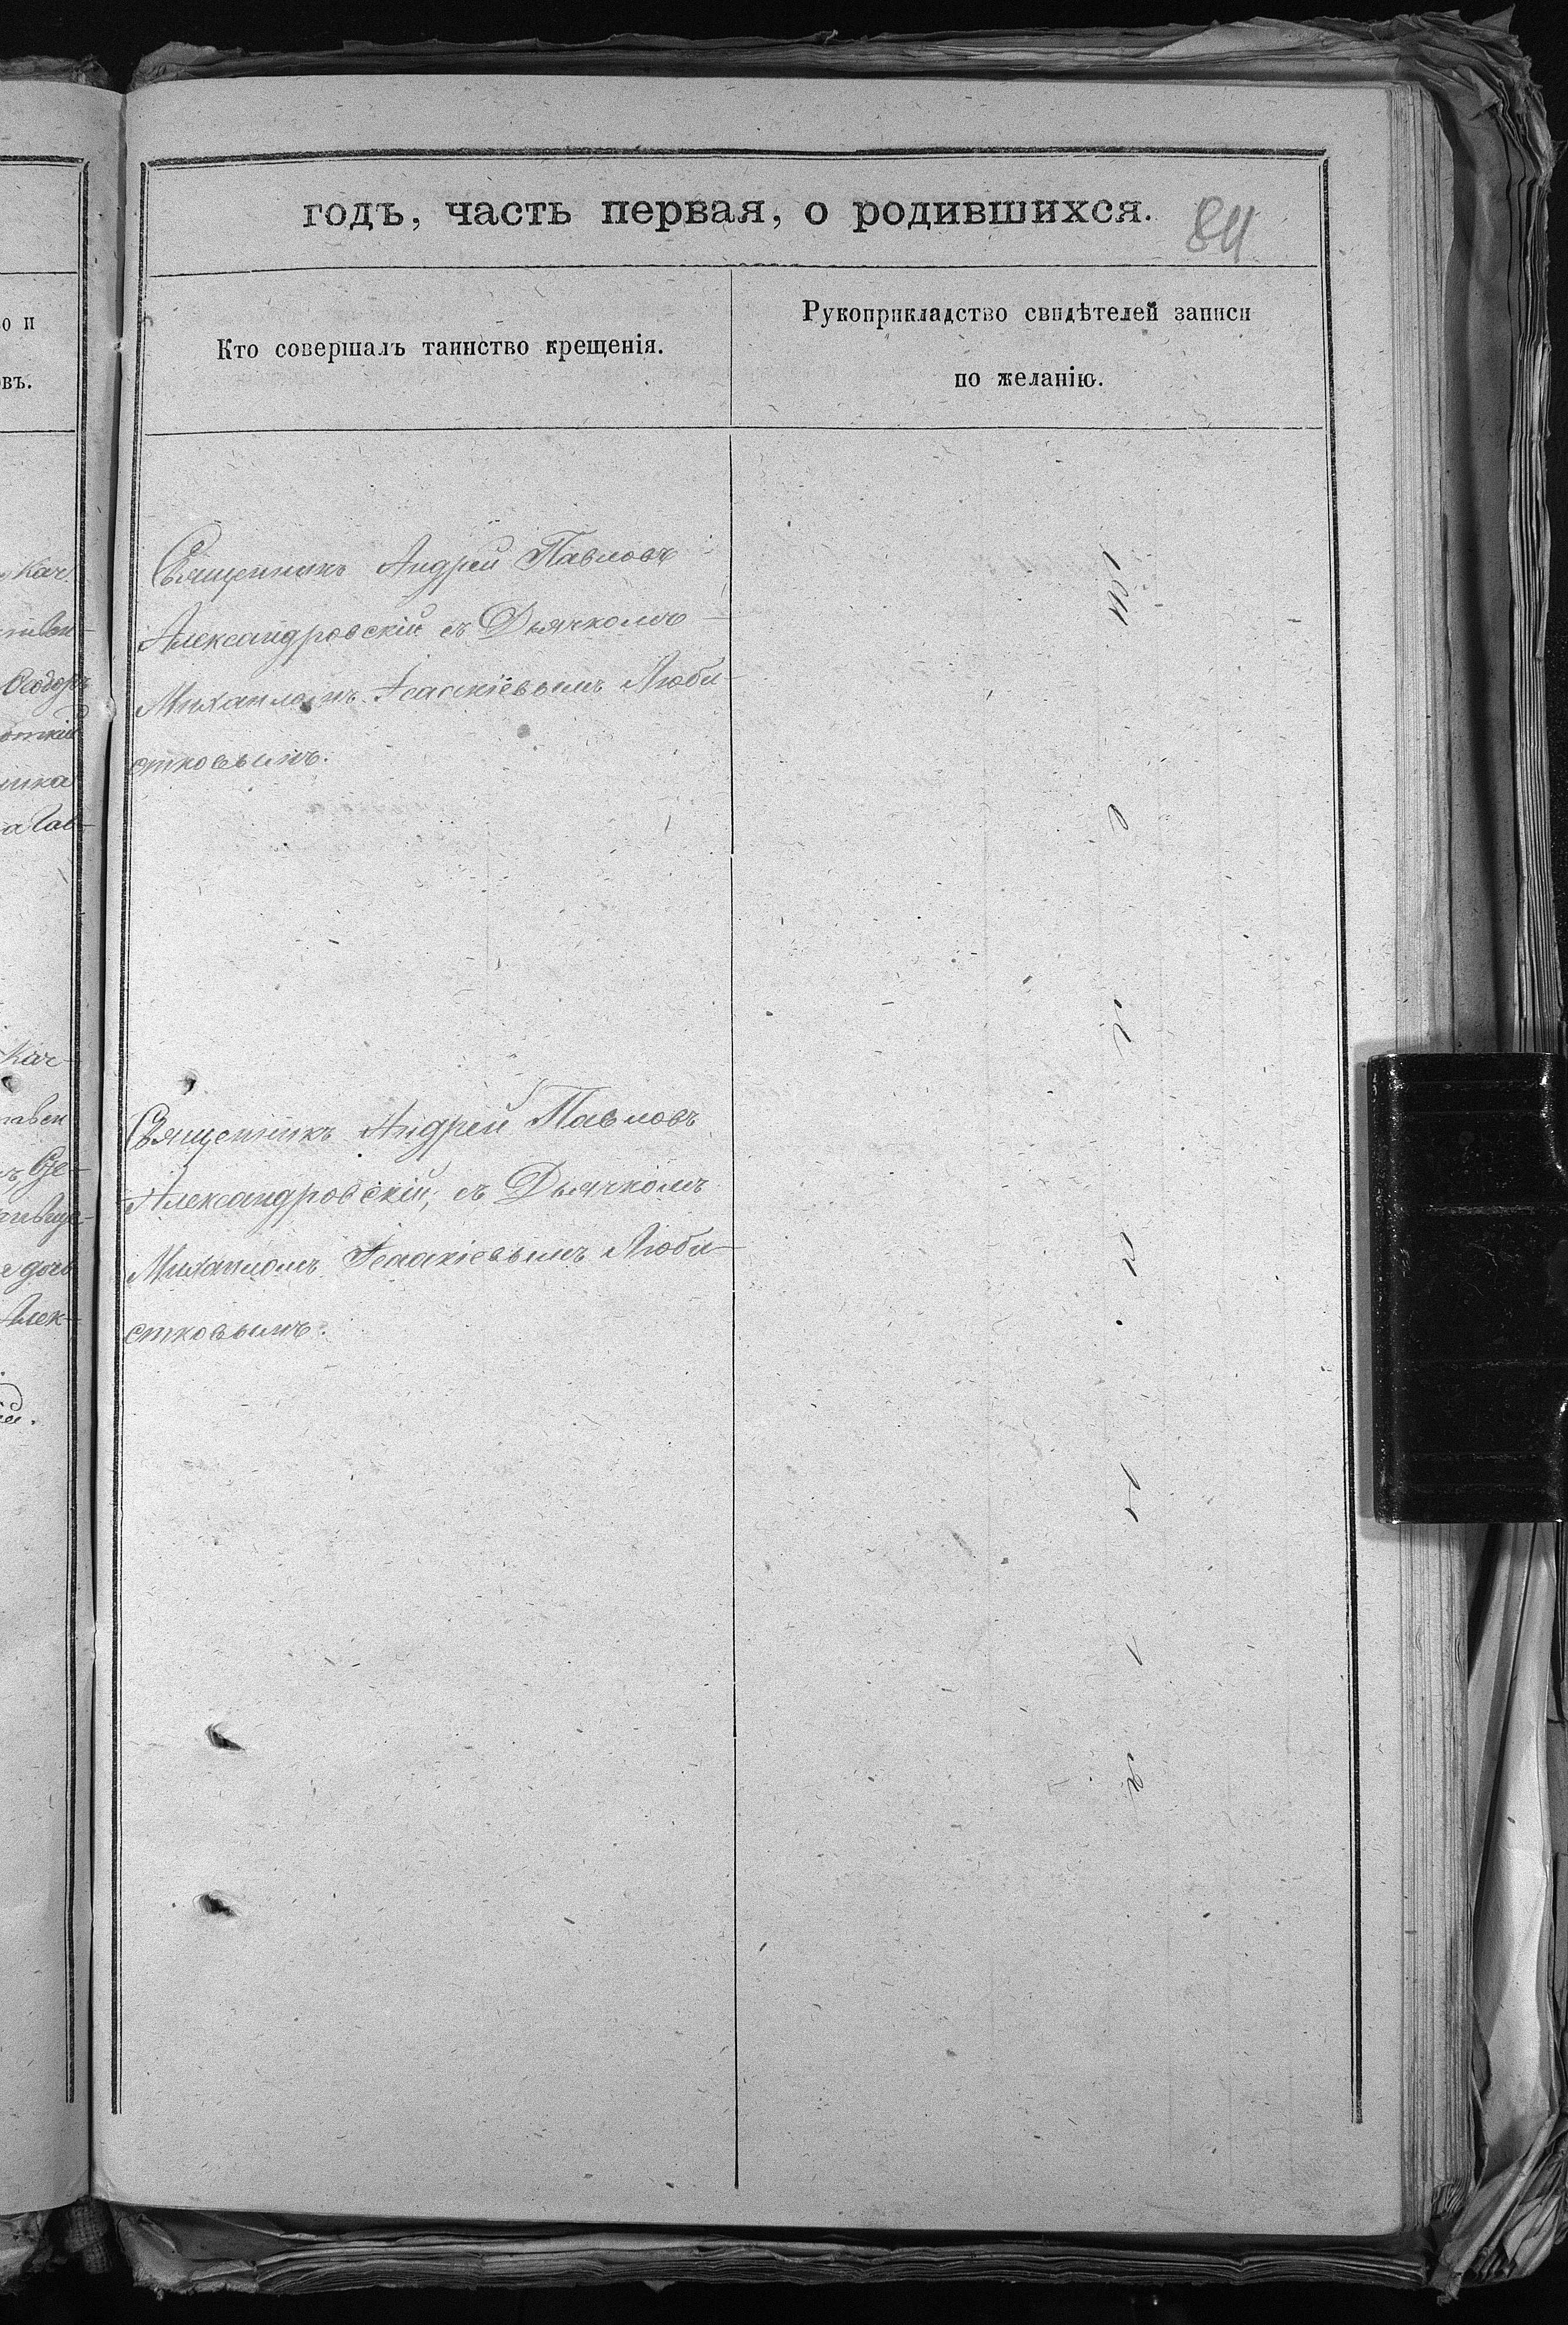 годъ, часть первая, о родившихся.
84
Кто совершалъ таинство крещенія.
Рукоприкладство свидѣтелей записи
по желанію.
Священникъ Андрей Павловъ
Александровскій съ Дьячкомъ
Михаиломъ Исаакіевымъ Люби-
стковымъ.
Священникъ Андрей Павловъ
Александровскій, съ Дьячкомъ
Михаиломъ Исаакіевымъ Люби-
стковымъ.
о и
овъ.
Кач
Ѳеодоръ
Кач-
Алек-